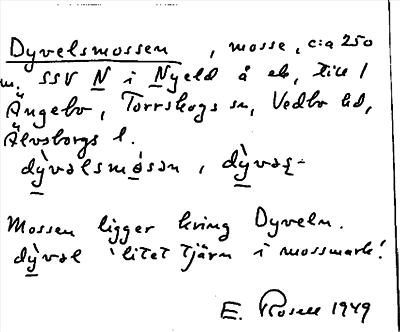 Dyvelsmossen, mosse, c:a 250
m, SSV N i Nyeld å ek, till 1
Ängebo, Torrskogs sn, Vedbo hd,
Älvsborgs l.
dỳvəlsmɵsən, dỳvəɫ-
Mossen ligger kring Dyveln.
dỳvəl 'litet tjärn i mossmark'.
E. Rosell 1949